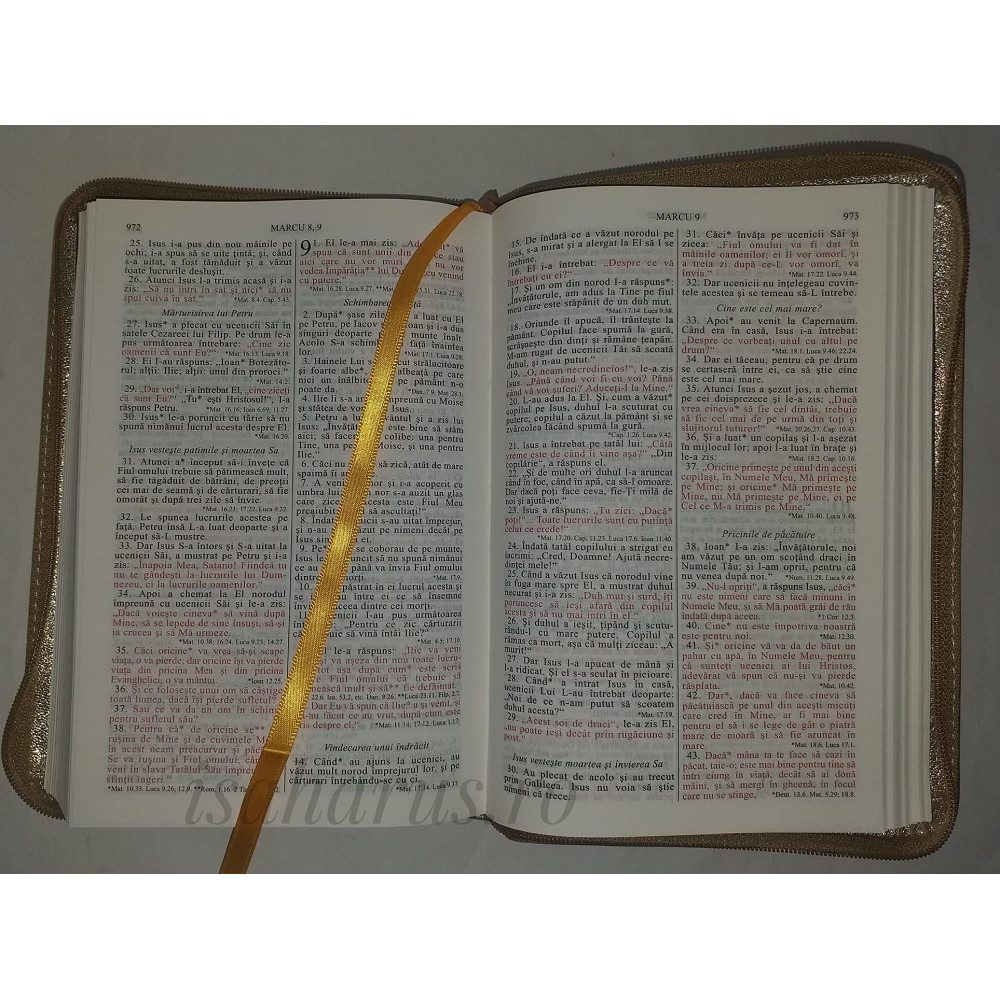 972
MARCU 8, 9
25. Isus i-a pus din nou mâinile pe
ochi; i-a spus să se uite ţintă; şi, când
s-a uitat, a fost tămăduit şi a văzut
toate lucrurile desluşit.
26. Atunci Isus l-a trimis acasă şi i-a
zis: „Să nu intri în sat şi nici* să nu
spui cuiva în sat.
*Mat. 8.4. Cap. 5.43.
Mărturisirea lui Petru
27. Isus* a plecat cu ucenicii Săi în
satele Cezareei lui Filip. Pe drum le-a
pus următoarea întrebare: „Cine zic
oamenii că sunt Eu?”
*Mat. 16.13. Luca 9.18.
28. Ei I-au răspuns: „Ioan* Botezăto-
rul; alţii: Ilie; alţii: unul din proroci.”
*Mat. 14.2.
29. „Dar voi”, i-a întrebat El, „cine ziceţi
că sunt Eu?” „Tu* eşti Hristosul!”, I-a
răspuns Petru.
*Mat. 16.16; Ioan 6.69; 11.27.
30. Isus* le-a poruncit cu tărie să nu
spună nimănui lucrul acesta despre El.
*Mat. 16.20.
Isus vesteşte patimile şi moartea Sa
31. Atunci a* început să-i înveţe că
Fiul omului trebuie să pătimească mult,
să fie tăgăduit de bătrâni, de preoţii
cei mai de seamă şi de cărturari, să fie
omorât şi după trei zile să învie.
*Mat. 16.21; 17.22. Luca 9.22.
32. Le spunea lucrurile acestea pe
faţă. Petru însă L-a luat deoparte şi a
început să-L mustre.
33. Dar Isus S-a întors şi S-a uitat la
ucenicii Săi, a mustrat pe Petru şi i-a
zis: „Înapoia Mea, Satano! Fiindcă tu
nu te gândeşti la lucrurile lui Dum-
nezeu, ci la lucrurile oamenilor.”
34. Apoi a chemat la El norodul
împreună cu ucenicii Săi şi le-a zis:
„Dacă voieşte cineva* să vină după
Mine, să se lepede de sine însuşi, să-şi
ia crucea şi să Mă urmeze.
*Mat. 10.38; 16.24. Luca 9.23; 14.27.
35. Căci oricine* va vrea să-şi scape
viaţa, o va pierde; dar oricine îşi va pierde
viaţa din pricina Mea şi din pricina
Evangheliei, o va mântui.
*Ioan 12.25.
36. Şi ce foloseşte unui om să câştige
toată lumea, dacă îşi pierde sufletul?
37. Sau ce va da un om în schimb
pentru sufletul său?
38. Pentru că* de oricine se**
ruşina de Mine şi de cuvintele Mele
în acest neam preacurvar şi păcă
Se va ruşina şi Fiul omului, când
veni în slava Tatălui Său împreu
sfinţii îngeri.”
*Mat. 10.33. Luca 9.26; 12.9. **Rom. 1.16. 2 Tim
9 1. El le-a mai zis: „Adev vă
spun că sunt unii din ce stau
aici care nu vor muri nu vor
vedea Împărăţia** lui Du venind
cu putere.”
Schimbarea faţă
2. După* şase zile a luat cu El
pe Petru, pe Iacov Ioan şi i-a dus
singuri deoparte munte înalt.
Acolo S-a schim faţă înaintea
lor.
*Mat. 17.1. Luca 9.28.
3. Hainele Lui strălucitoare
şi foarte albe*, albeaţă pe care
nici un înălbito pe pământ n-o
poate da.
*Dan. 7.9. Mat. 28.3.
4. Ilie li s-a împreună cu Moise
şi stătea de vo Isus.
5. Petru a luat şi a zis lui
Isus: „Învăţăt este bine să stăm
aici; să face colibe: una pentru
Tine, una pen Moise şi una pentru
Ilie.”
6. Căci nu să zică, atât de mare
spaimă îi a
7. A venit nor şi i-a acoperit cu
umbra lui; nor s-a auzit un glas
care zicea: Acesta este Fiul Meu
preaiubit ascultaţi!”
8. Îndată s-au uitat împrejur,
şi n-au văzut pe nimeni decât pe
Isus sing ei.
9. Pe* se coborau de pe munte,
Isus le-a poruncit să nu spună nimănui
ce au pân ce va învia Fiul omului
dintre
*Mat. 17.9.
10. păstrat în ei lucrul acesta,
se într ei ce să însemne
învierea aceea dintre cei morţi.
11. „Pentru ce zic cărturarii
că trebuie să vină întâi Ilie?”
*Mat. 4.5; 17.10.
le-a răspuns: „Ilie va veni
va aşeza din nou toate lucru-
după cum* este scris
Fiul omului că trebuie să
mească mult şi să** fie defăimat.
Dar Eu vă spun că Ilie* a şi venit, şi
i-au făcut ce au vrut, după cum este
scris despre el.”
*Mat. 11.14; 17.12. Luca 1.17.
Vindecarea unui îndrăcit
14. Când* au ajuns la ucenici, au
văzut mult norod împrejurul lor, şi pe
cărturari întrebându-se cu ei.
*Mat. 17.14. Luca 9.37.
MARCU 9
973
15. De îndată ce a văzut norodul pe
Isus, s-a mirat şi a alergat la El să I se
închine.
16. El i-a întrebat: „Despre ce vă
întrebaţi cu ei?”
17. Şi un om din norod I-a răspuns*:
„Învăţătorule, am adus la Tine pe fiul
meu care este stăpânit de un duh mut.
*Mat. 17.14. Luca 9.38.
18. Oriunde îl apucă, îl trânteşte la
pământ. Copilul face spumă la gură,
scrâşneşte din dinţi şi rămâne ţeapăn.
M-am rugat de ucenicii Tăi să scoată
duhul, şi n-au putut.”
19. „O, neam necredincios!”, le-a zis
Isus. „Până când voi fi cu voi? Până
când vă voi suferi? Aduceţi-l la Mine.”
20. L-au adus la El. Şi, cum a văzut*
copilul pe Isus, duhul l-a scuturat cu
putere; copilul a căzut la pământ şi se
zvârcolea făcând spumă la gură.
*Cap. 1.26. Luca 9.42.
21. Isus a întrebat pe tatăl lui: „Câtă
vreme este de când îi vine aşa?” „Din
copilărie”, a răspuns el.
22. „Şi de multe ori duhul l-a aruncat
când în foc, când în apă, ca să-l omoare.
Dar dacă poţi face ceva, fie-Ţi milă de
noi şi ajută-ne.”
23. Isus a răspuns: „Tu zici: „Dacă*
poţi!”... Toate lucrurile sunt cu putinţă
celui ce crede!”
*Mat. 17.20. Cap. 11.23. Luca 17.6. Ioan 11.40.
24. Îndată tatăl copilului a strigat cu
lacrimi: „Cred, Doamne! Ajută necre-
dinţei mele!”
25. Când a văzut Isus că norodul vine
în fuga mare spre El, a mustrat duhul
necurat şi i-a zis: „Duh mut şi surd, îţi
poruncesc să ieşi afară din copilul
acesta şi să nu mai intri în el.”
26. Şi duhul a ieşit, ţipând şi scutu-
rându-l cu mare putere. Copilul a
rămas ca mort, aşa că mulţi ziceau: „A
murit!”
27. Dar Isus l-a apucat de mână şi
l-a ridicat. Şi el s-a sculat în picioare.
28. Când* a intrat Isus în casă,
ucenicii Lui L-au întrebat deoparte:
„Noi de ce n-am putut să scoatem
duhul acesta?”
*Mat. 17.19.
29. „Acest soi de draci”, le-a zis El,
„nu poate ieşi decât prin rugăciune şi
post.”
Isus vesteşte moartea şi învierea Sa
30. Au plecat de acolo şi au trecut
prin Galileea. Isus nu voia să ştie
nimeni că trece.
31. Căci* învăţa pe ucenicii Săi şi
zicea: „Fiul omului va fi dat în
mâinile oamenilor; ei Îl vor omorî, şi
a treia zi după ce-L vor omorî, va
învia.”
*Mat. 17.22. Luca 9.44.
32. Dar ucenicii nu înţelegeau cuvin-
tele acestea şi se temeau să-L întrebe.
Cine este cel mai mare?
33. Apoi* au venit la Capernaum.
Când era în casă, Isus i-a întrebat:
„Despre ce vorbeaţi unul cu altul pe
drum?”
*Mat. 18.1. Luca 9.46; 22.24.
34. Dar ei tăceau, pentru că pe drum
se certaseră între ei, ca să ştie cine
este cel mai mare.
35. Atunci Isus a şezut jos, a chemat
pe cei doisprezece şi le-a zis: „Dacă
vrea cineva* să fie cel dintâi, trebuie
să fie cel mai de pe urmă din toţi şi
slujitorul tuturor!”
*Mat. 20.26,27. Cap. 10.43.
36. Şi a luat* un copilaş şi l-a aşezat
în mijlocul lor; apoi l-a luat în braţe şi
le-a zis:
*Mat. 18.2. Cap. 10.16.
37. „Oricine primeşte pe unul din aceşti
copilaşi, în Numele Meu, Mă primeşte
pe Mine; şi oricine* Mă primeşte pe
Mine, nu Mă primeşte pe Mine, ci pe
Cel ce M-a trimis pe Mine.”
*Mat. 10.40. Luca 9.48.
Pricinile de păcătuire
38. Ioan* I-a zis: „Învăţătorule, noi
am văzut pe un om scoţând draci în
Numele Tău; şi l-am oprit, pentru că
nu venea după noi.”
*Num. 11.28. Luca 9.49.
39. „Nu-l opriţi”, a răspuns Isus, „căci*
nu este nimeni care să facă minuni în
Numele Meu, şi să Mă poată grăi de rău
îndată după aceea.
*1 Cor. 12.3.
40. Cine* nu este împotriva noastră
este pentru noi.
*Mat. 12.30.
41. Şi* oricine vă va da de băut un
pahar cu apă, în Numele Meu, pentru
că sunteţi ucenici ai lui Hristos,
adevărat vă spun că nu-şi va pierde
răsplata.
*Mat. 10.42.
42. Dar*, dacă va face cineva să
păcătuiască pe unul din aceşti micuţi
care cred în Mine, ar fi mai bine
pentru el să i se lege de gât o piatră
mare de moară şi să fie aruncat în
mare.
*Mat. 18.6. Luca 17.1.
43. Dacă* mâna ta te face să cazi în
păcat, taie-o; este mai bine pentru tine să
intri ciung în viaţă, decât să ai două
mâini, şi să mergi în gheenă, în focul
care nu se stinge.
*Deut. 13.6. Mat. 5.29; 18.8.
isaharus.ro